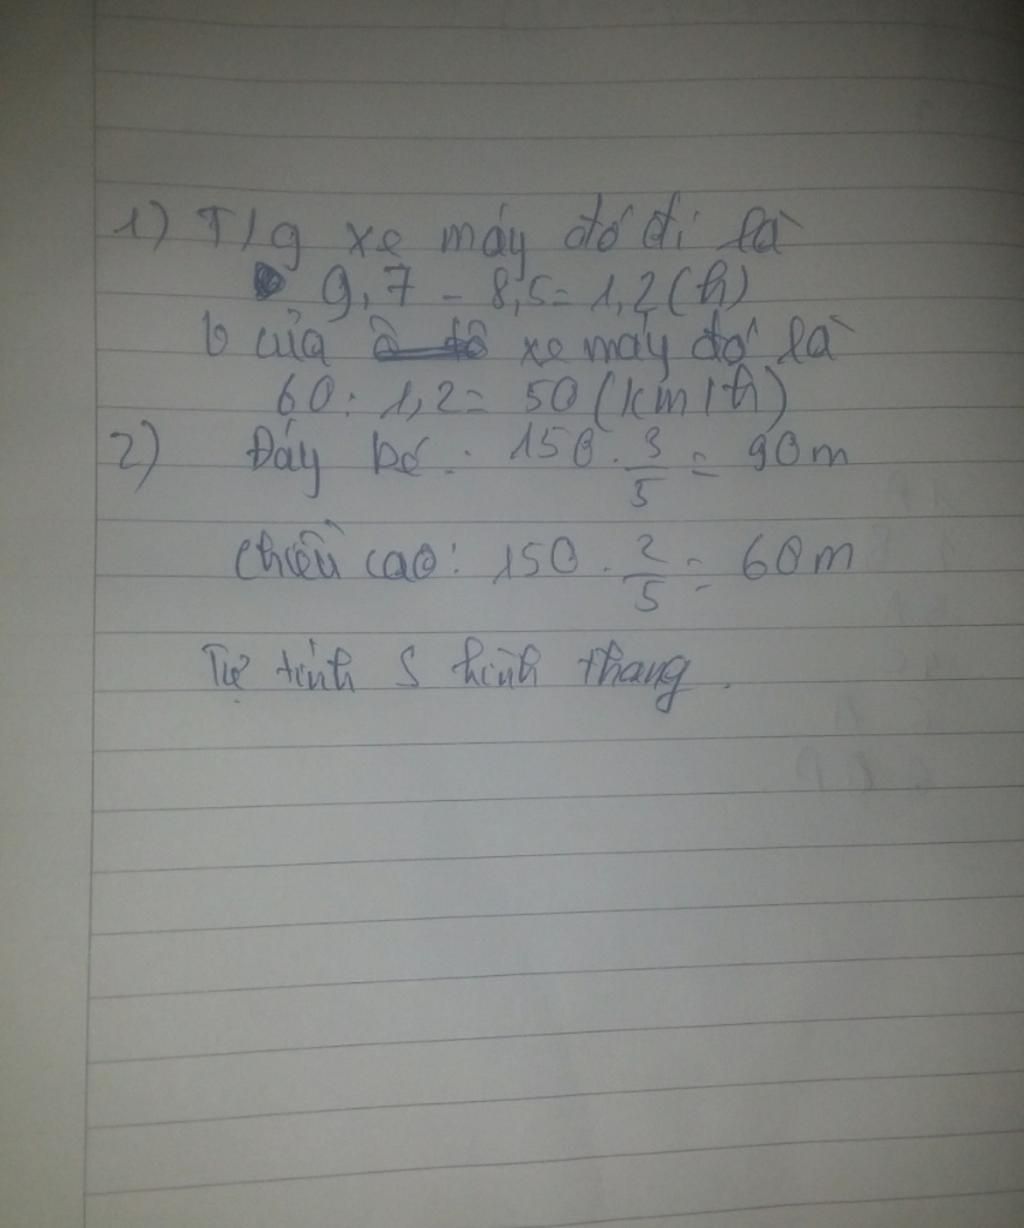 1) T/g xe máy đó đi là
9,7 - 8,5 = 1,2 (h)
v của xe máy đó là
60 : 1,2 = 50 (km/h)
2) Đáy bé : 150 . 3/5 = 90m
Chiều cao : 150 . 2/5 = 60m
Tự tính S hình thang .